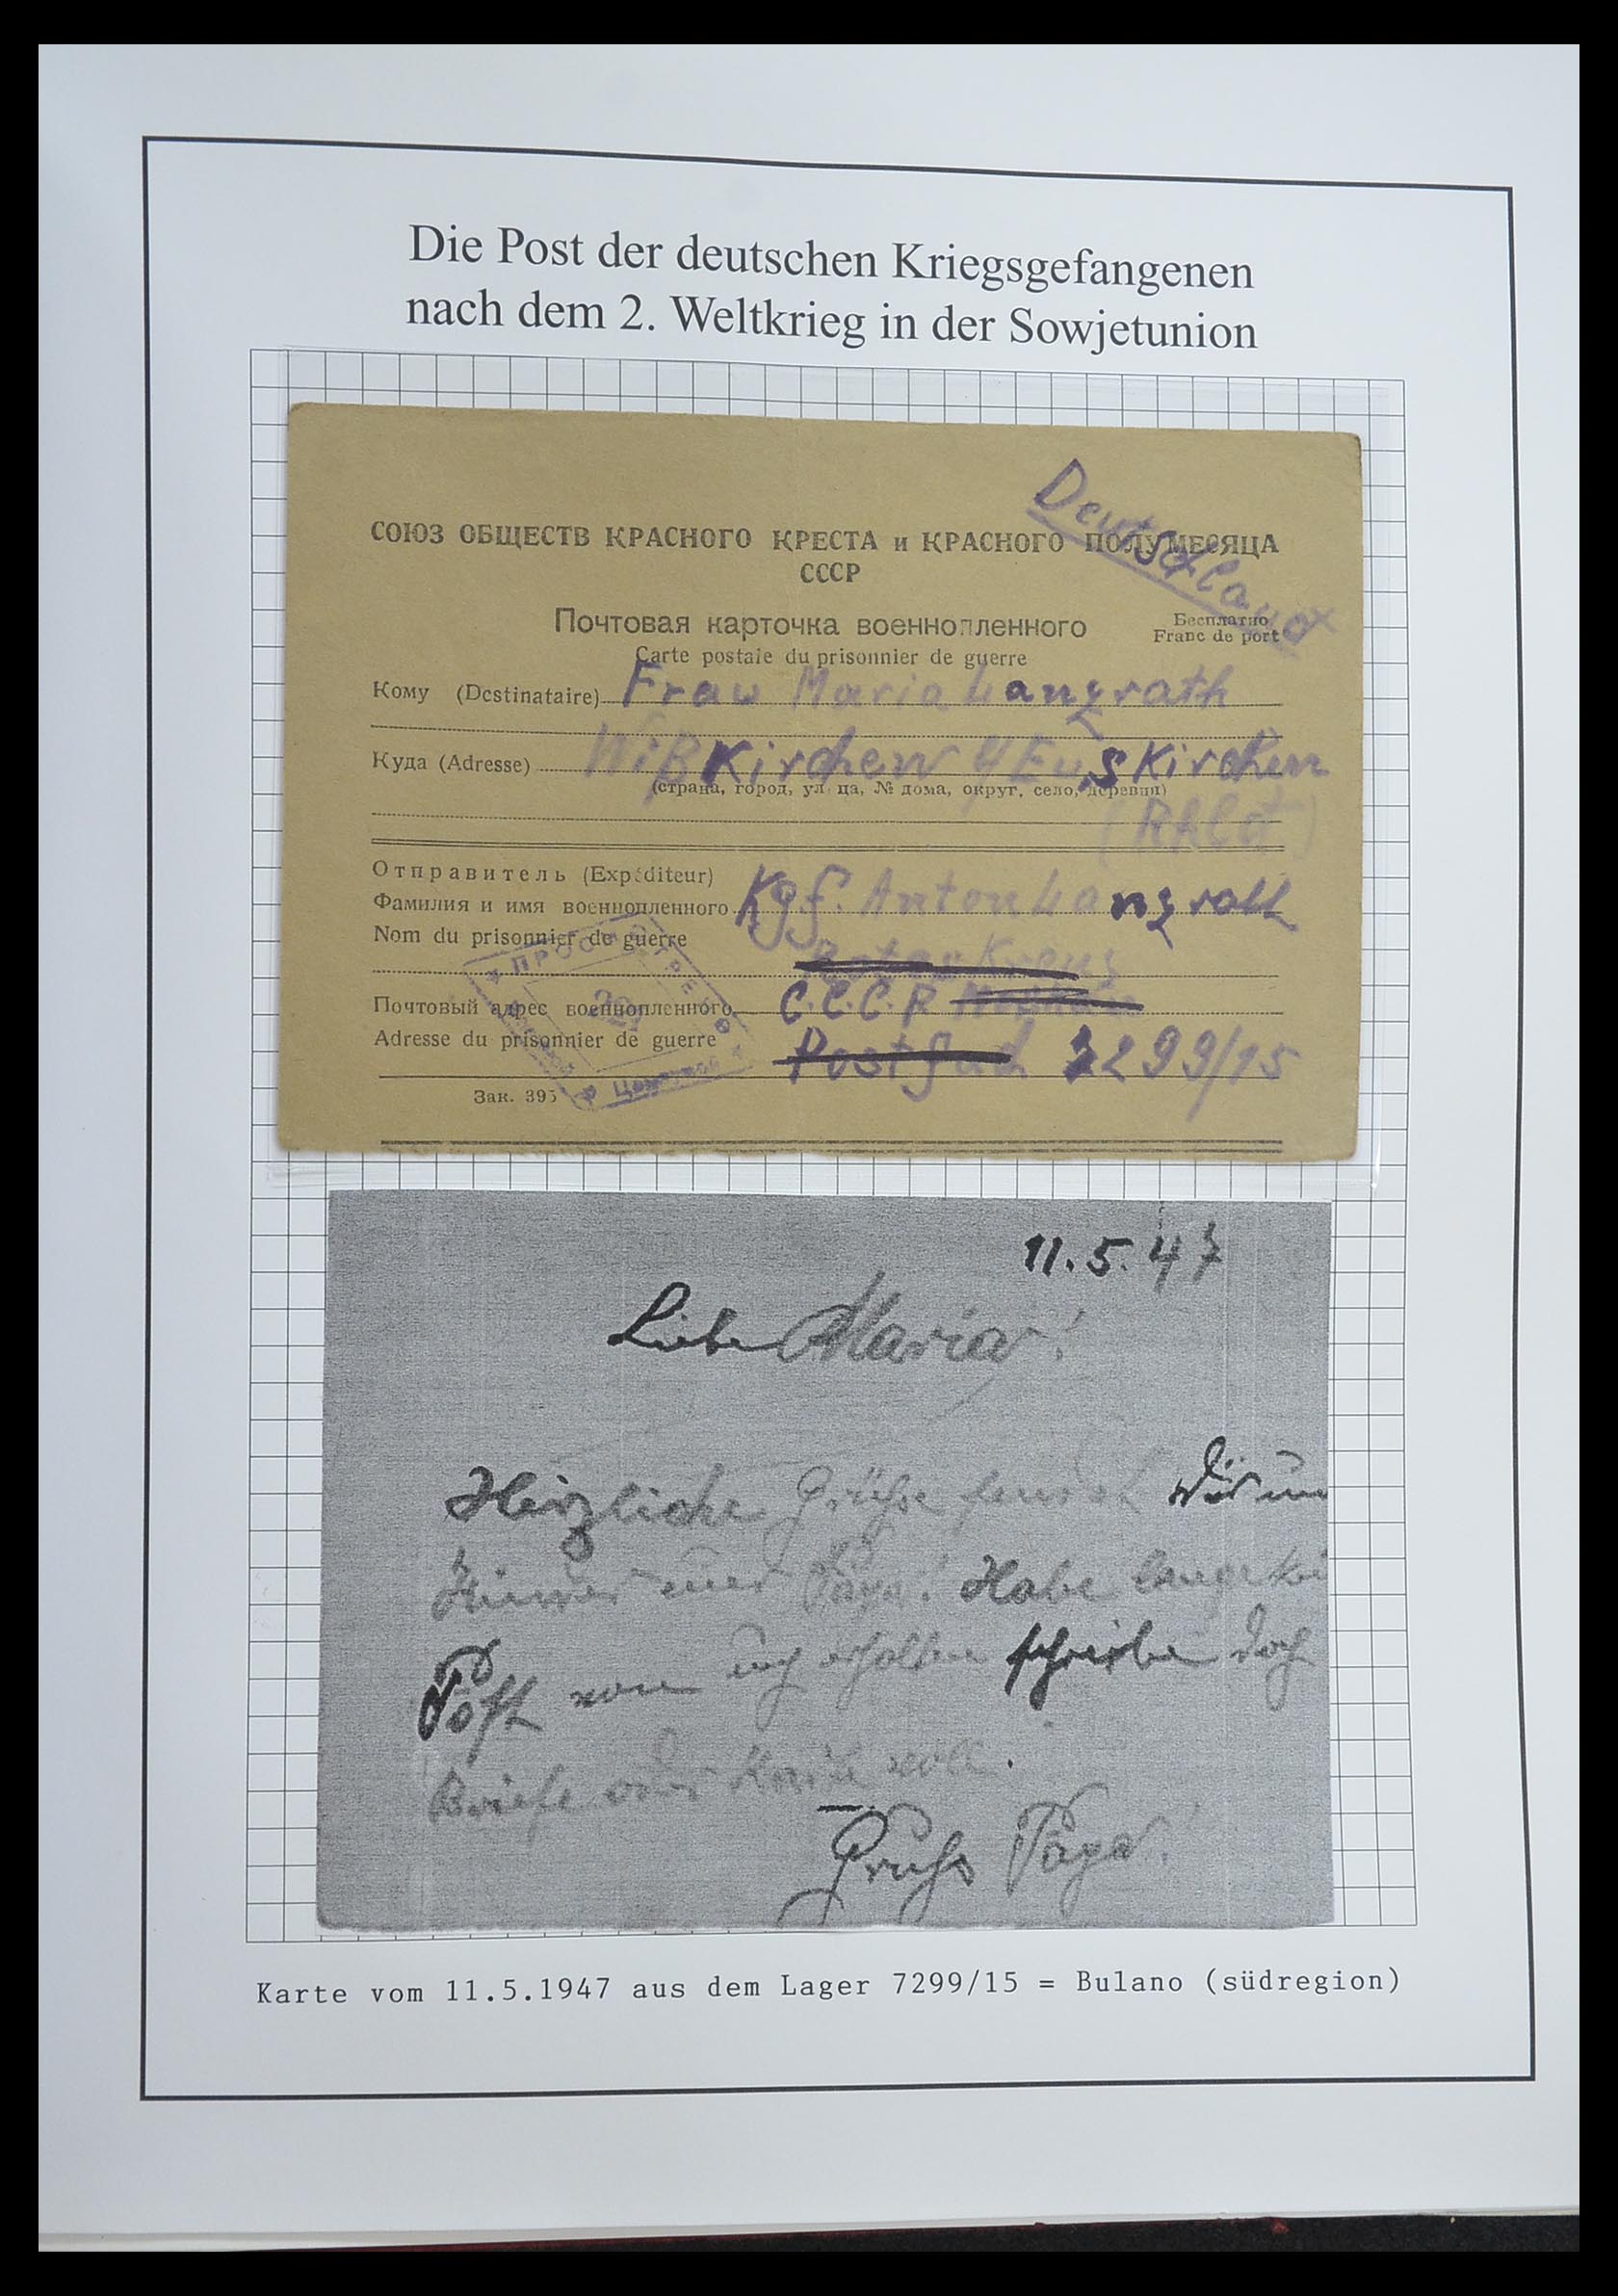 Die Post der deutschen Kriegsgefangenen
nach dem 2. Weltkrieg in der Sowjetunion
Deutschland
СОЮЗ ОБЩЕСТВ КРАСНОГО КРЕСТА и КРАСНОГО ПОЛУМЕСЯЦА
СССР
Почтовая карточка военнопленного
Бесплатно
Franc de port
Carte postale du prisonnier de guerre
Кому (Destinataire) Frau Maria Langrath
Куда (Adresse) Wißkirchen Euskirchen
(страна, город, улица, № дома, округ, село, деревня)
(Rhld)
Отправитель (Expéditeur)
Фамилия и имя военнопленного Kgf. Anton Langrath
Nom du prisonnier de guerre
Rotes Kreuz
Почтовый адрес военнопленного C.C.C.P. Moskau
Adresse du prisonnier de guerre Postfach 7299/15
Зак. 395
11.5.47
Liebe Maria!
Herzliche Grüße sendet Dir
Papa! Habe lange
Post von euch erhalten schreibe doch
Briefe oder Karte
Gruß Papa!
Karte vom 11.5.1947 aus dem Lager 7299/15 = Bulano (südregion)